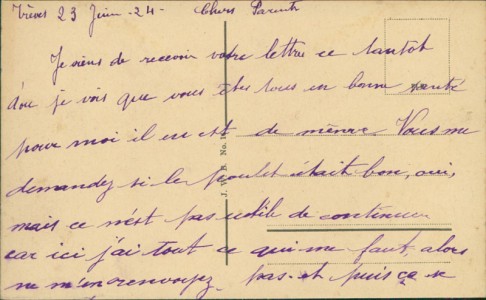 Trèves 23 Juin - 24 - Chers Parents
Je viens de recevoir votre lettre ce tantot
dou je vois que vous êtes tous en bonne santé
pour moi il en est de même. Vous me
demandez si le poulet était bon, oui,
mais ce n'est pas utile de continuer
car ici j'ai tout ce qui me faut, alors
ne m'en renvoyez pas et puis ça se
J. W. B. No.